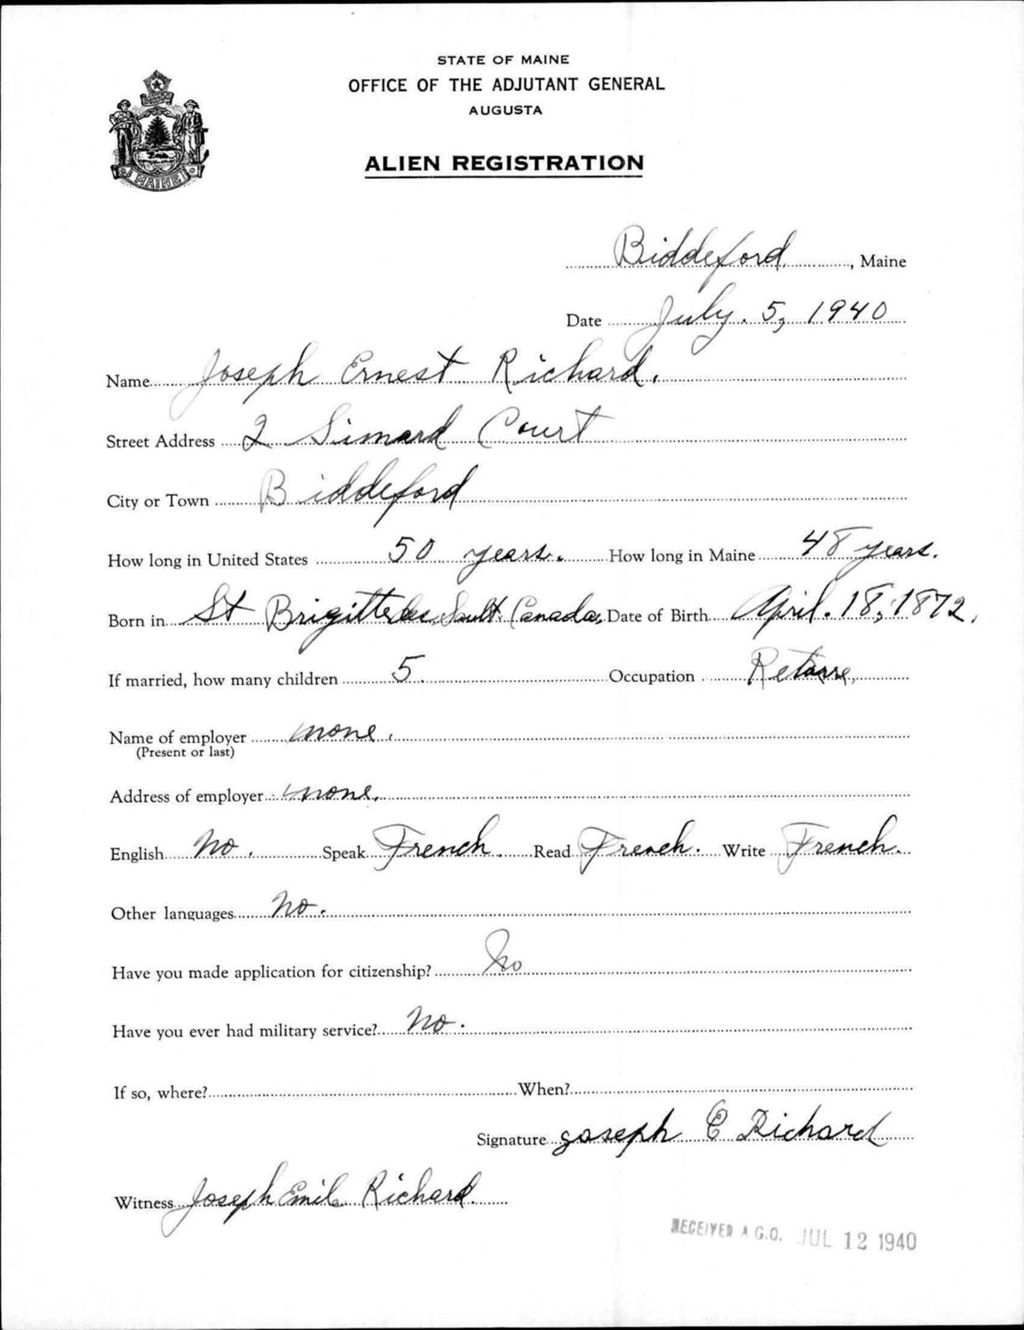 STATE OF MAINE
OFFICE OF THE ADJUTANT GENERAL
AUGUSTA
ALIEN REGISTRATION
MAINE
Biddeford, Maine
Date July. 5, 1940
Name Joseph Ernest Richard.
Street Address 2 Simard Court
City or Town Biddeford
How long in United States 50 years. How long in Maine 48 years.
Born in St Brigitte des Sault. Canada. Date of Birth April. 18, 1872.
If married, how many children 5. Occupation
Name of employer none.
(Present or last)
Address of employer none.
English No. Speak French. Read French. Write French.
Other languages No.
Have you made application for citizenship? No
Have you ever had military service? No.
If so, where? When?
Signature joseph E Richard
Witness Joseph Emil Richard
RECEIVED A.G.O. JUL 12 1940